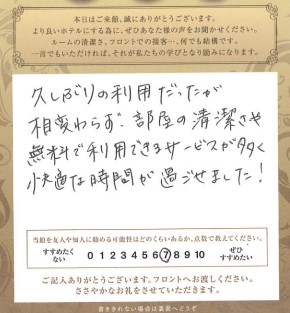 本日はご来館、誠にありがとうございます。
より良いホテルにする為に、ぜひあなた様の声をお聞かせください。
ルームの清潔さ、フロントでの接客…、何でも結構です。
一言でもいただければ、それが私たちの学びとなり励みになります。
久しぶりの利用だったが
相変わらず、部屋の清潔さや
無料で利用できるサービスが多く
快適な時間が過ごせました！
当館を友人や知人に勧める可能性はどのくらいあるか、点数で教えてください。
すすめたくない 0 1 2 3 4 5 6 7 8 9 10 ぜひすすめたい
ご記入ありがとうございます。フロントへお渡しください。
ささやかなお礼をさせていただきます。
書ききれない場合は裏面へどうぞ